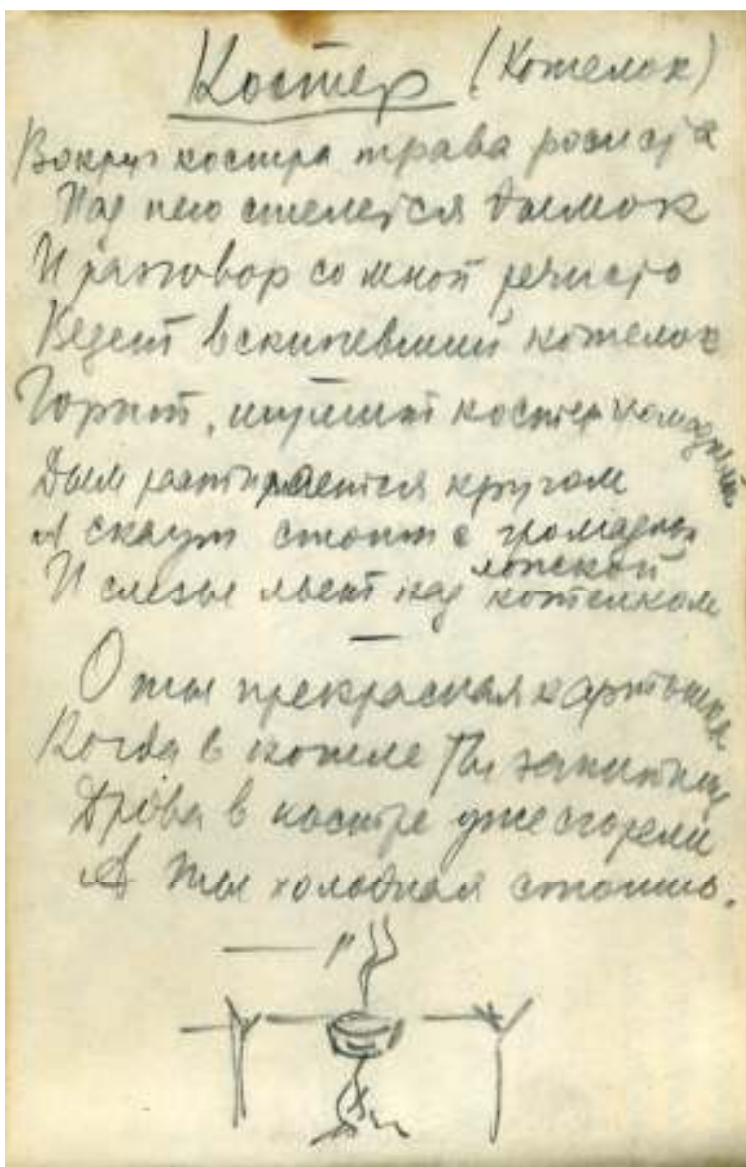 Костер (Котелок)
Вокруг костра трава росиста
Над нею стелется дымок
И разговор со мной речисто
Ведет вскипевший котелок
Горит, шумит костер громадный
Дым расстилается кругом
А скаут стоит с громадной
ложкой
И слезы льет над котелком
О ты прекрасная картошка
Когда в котле ты закипишь
Дрова в костре уже сгорели
А ты холодная стоишь.